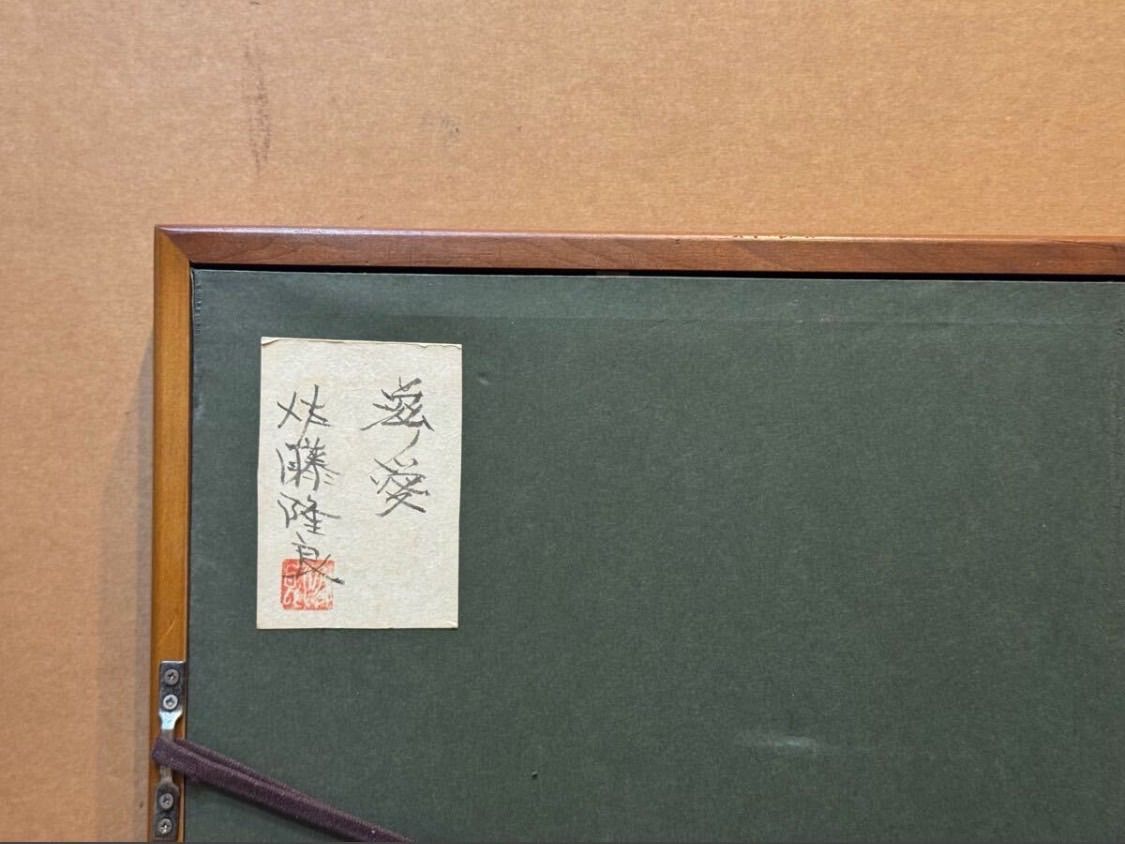 慈愛
佐藤隆良